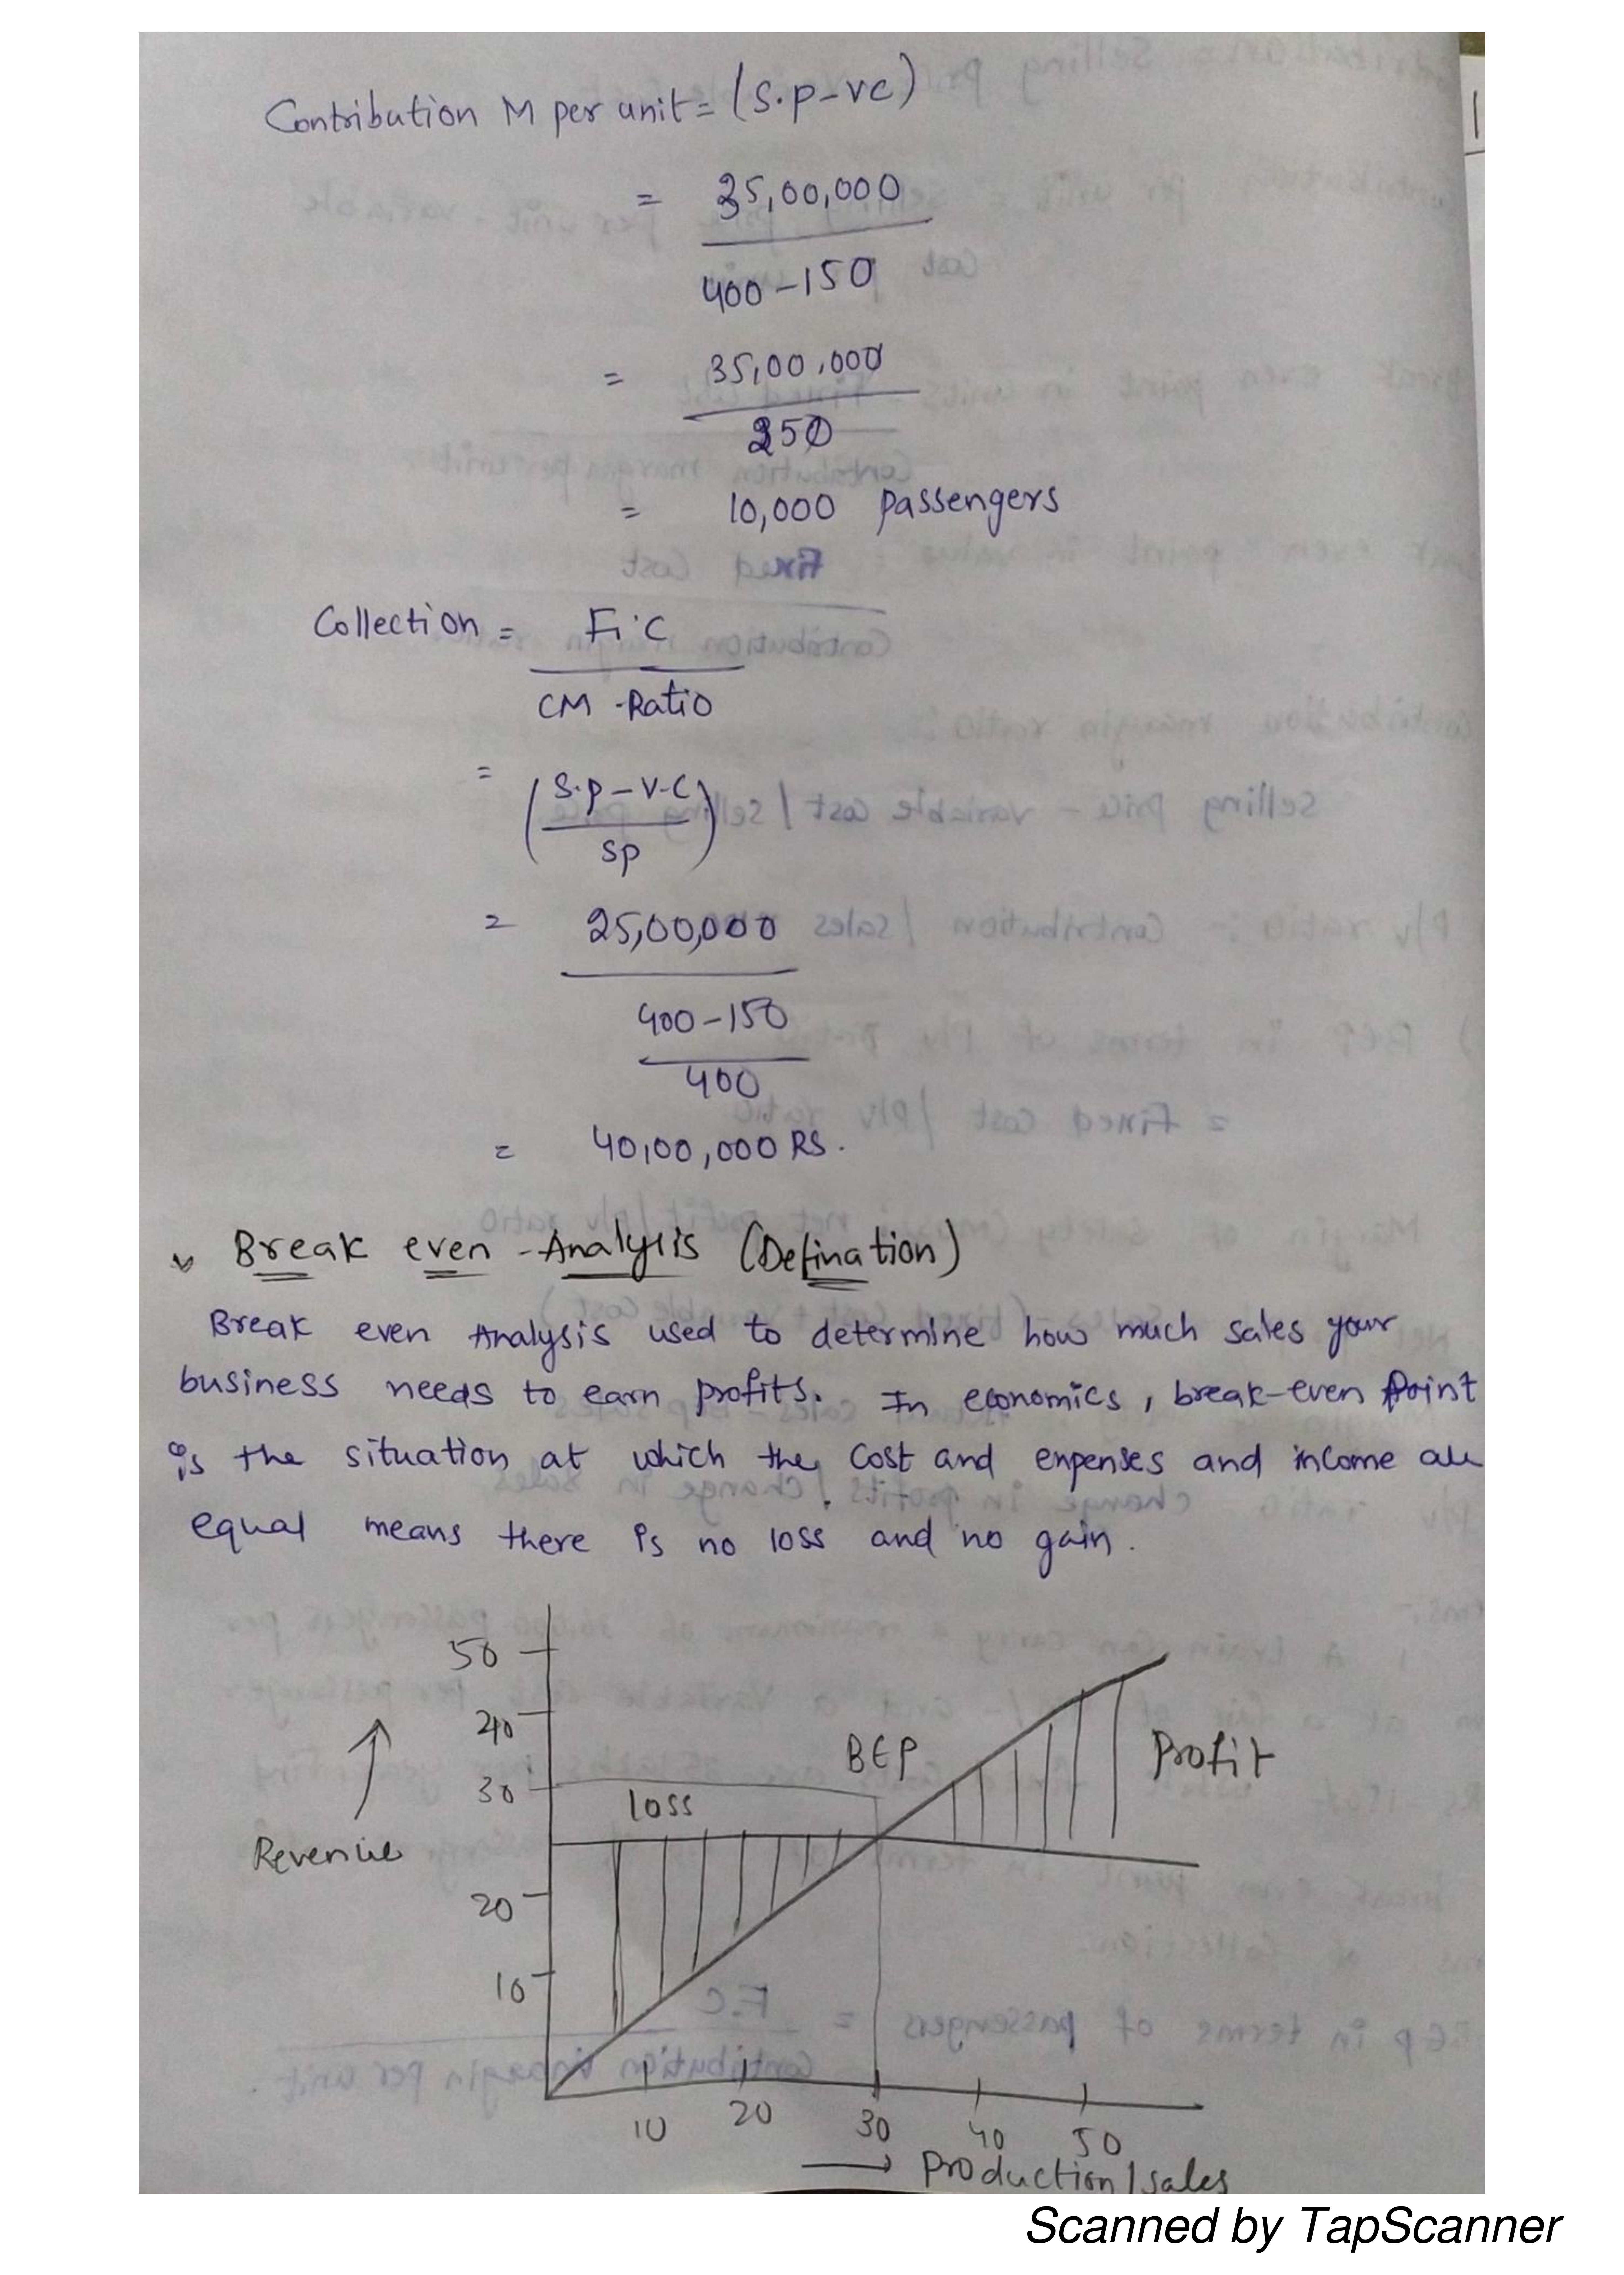 Contribution M per unit = (S.P-VC)
= 35,00,000
400-150
= 35,00,000
250
= 10,000 passengers
Collection = F.C
CM -Ratio
= (S.P-V.C
SP)
= 25,00,000
400-150
400
= 40,00,000 RS.
Break even -Analysis (Defination)
Break even Analysis used to determine how much sales your
business needs to earn profits. In economics, break-even point
is the situation at which the cost and expenses and income are
equal means there is no loss and no gain.
50
40
BEP
Profit
30
loss
Revenue
20
10
10 20 30 40 50
Production/sales
Scanned by TapScanner